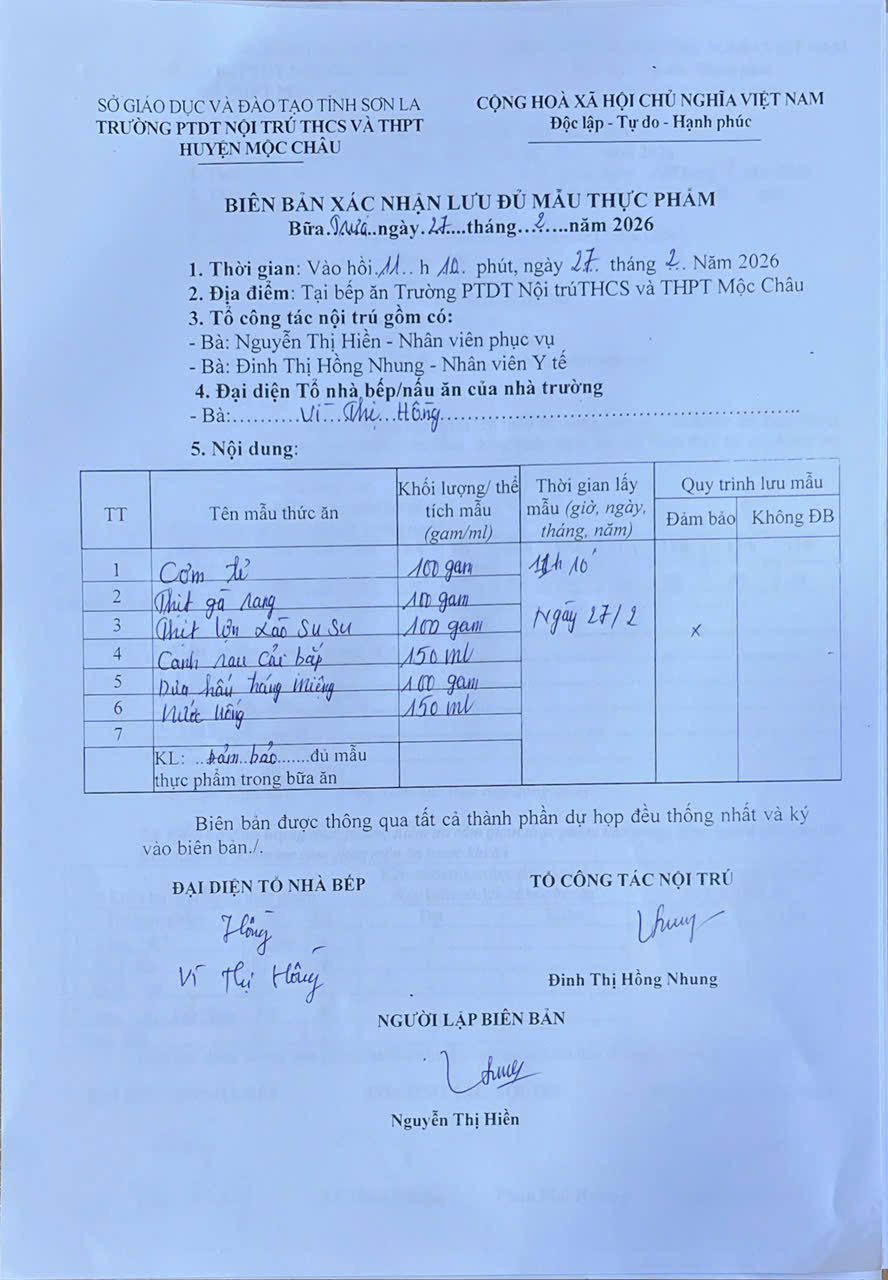 SỞ GIÁO DỤC VÀ ĐÀO TẠO TỈNH SƠN LA
TRƯỜNG PTDT NỘI TRÚ THCS VÀ THPT
HUYỆN MỘC CHÂU
CỘNG HOÀ XÃ HỘI CHỦ NGHĨA VIỆT NAM
Độc lập - Tự do - Hạnh phúc
BIÊN BẢN XÁC NHẬN LƯU ĐỦ MẪU THỰC PHẨM
Bữa.Trưa..ngày.27....tháng...2....năm 2026
1. Thời gian: Vào hồi.11.. h 10. phút, ngày 27. tháng 2. Năm 2026
2. Địa điểm: Tại bếp ăn Trường PTDT Nội trúTHCS và THPT Mộc Châu
3. Tổ công tác nội trú gồm có:
- Bà: Nguyễn Thị Hiền - Nhân viên phục vụ
- Bà: Đinh Thị Hồng Nhung - Nhân viên Y tế
4. Đại diện Tổ nhà bếp/nấu ăn của nhà trường
- Bà:..........Vì...Thị...Hồng..........
5. Nội dung:
TT Tên mẫu thức ăn Khối lượng/ thể tích mẫu (gam/ml) Thời gian lấy mẫu (giờ, ngày, tháng, năm) Quy trình lưu mẫu
Đảm bảo Không ĐB
1 Cơm tẻ 100 gam 11h 10'
2 Thịt gà rang 100 gam
3 Thịt lợn xào su su 100 gam Ngày 27/2 x
4 Canh rau cải bắp 150 ml
5 Dưa hấu tráng miệng 100 gam
6 Nước uống 150 ml
7
KL: ..đảm..bảo.......đủ mẫu
thực phẩm trong bữa ăn
Biên bản được thông qua tất cả thành phần dự họp đều thống nhất và ký
vào biên bản./.
ĐẠI DIỆN TỔ NHÀ BẾP
Hồng
Vì Thị Hồng
TỔ CÔNG TÁC NỘI TRÚ
Nhung
Đinh Thị Hồng Nhung
NGƯỜI LẬP BIÊN BẢN
Nguyễn Thị Hiền